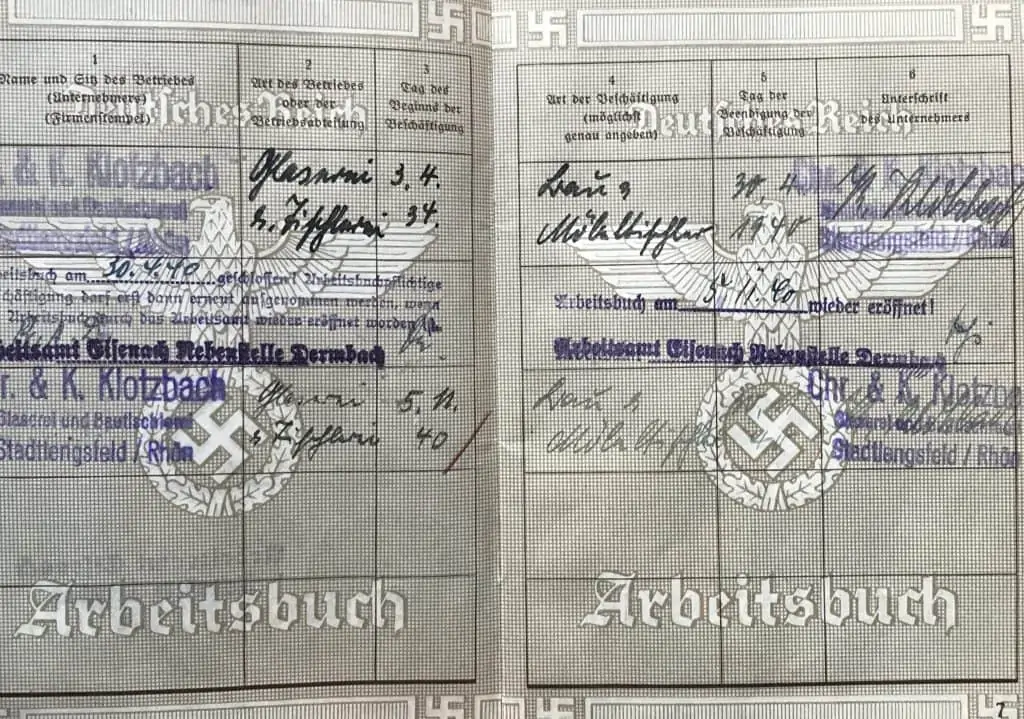 1
Name und Sitz des Betriebes
(Unternehmers)
(Firmenstempel)
2
Art des Betriebes
oder der
Betriebsabteilung
3
Tag des
Beginns der
Beschäftigung
Deutsches Reich
& K. Klotzbach
Glaserei und Bautischlerei
Stadtlengsfeld / Rhön
Glaserei
u. Tischlerei
3. 4.
34.
Arbeitsbuch am 30.4.40 geschlossen! Arbeitsbuchpflichtige
Beschäftigung darf erst dann erneut aufgenommen werden, wenn
Arbeitsbuch durch das Arbeitsamt wieder eröffnet worden ist.
Arbeitsamt Eisenach Nebenstelle Dermbach
Chr. & K. Klotzbach
Glaserei und Bautischlerei
Stadtlengsfeld / Rhön
Glaserei
u. Tischlerei
5. 11.
40
Arbeitsbuch
4
Art der Beschäftigung
(möglichst
genau angeben)
5
Tag der
Beendigung der
Beschäftigung
6
Unterschrift
des Unternehmers
Deutsches Reich
Bau u
Möbeltischler
30. 4
1940
Chr. & K. Klotzbach
K. Klotzbach
Stadtlengsfeld / Rhön
Arbeitsbuch am 5. 11. 40 wieder eröffnet!
Arbeitsamt Eisenach Nebenstelle Dermbach
Bau u
Möbeltischler
Chr. & K. Klotzba
Glaserei und
Stadtlengsfeld / Rhön
Arbeitsbuch